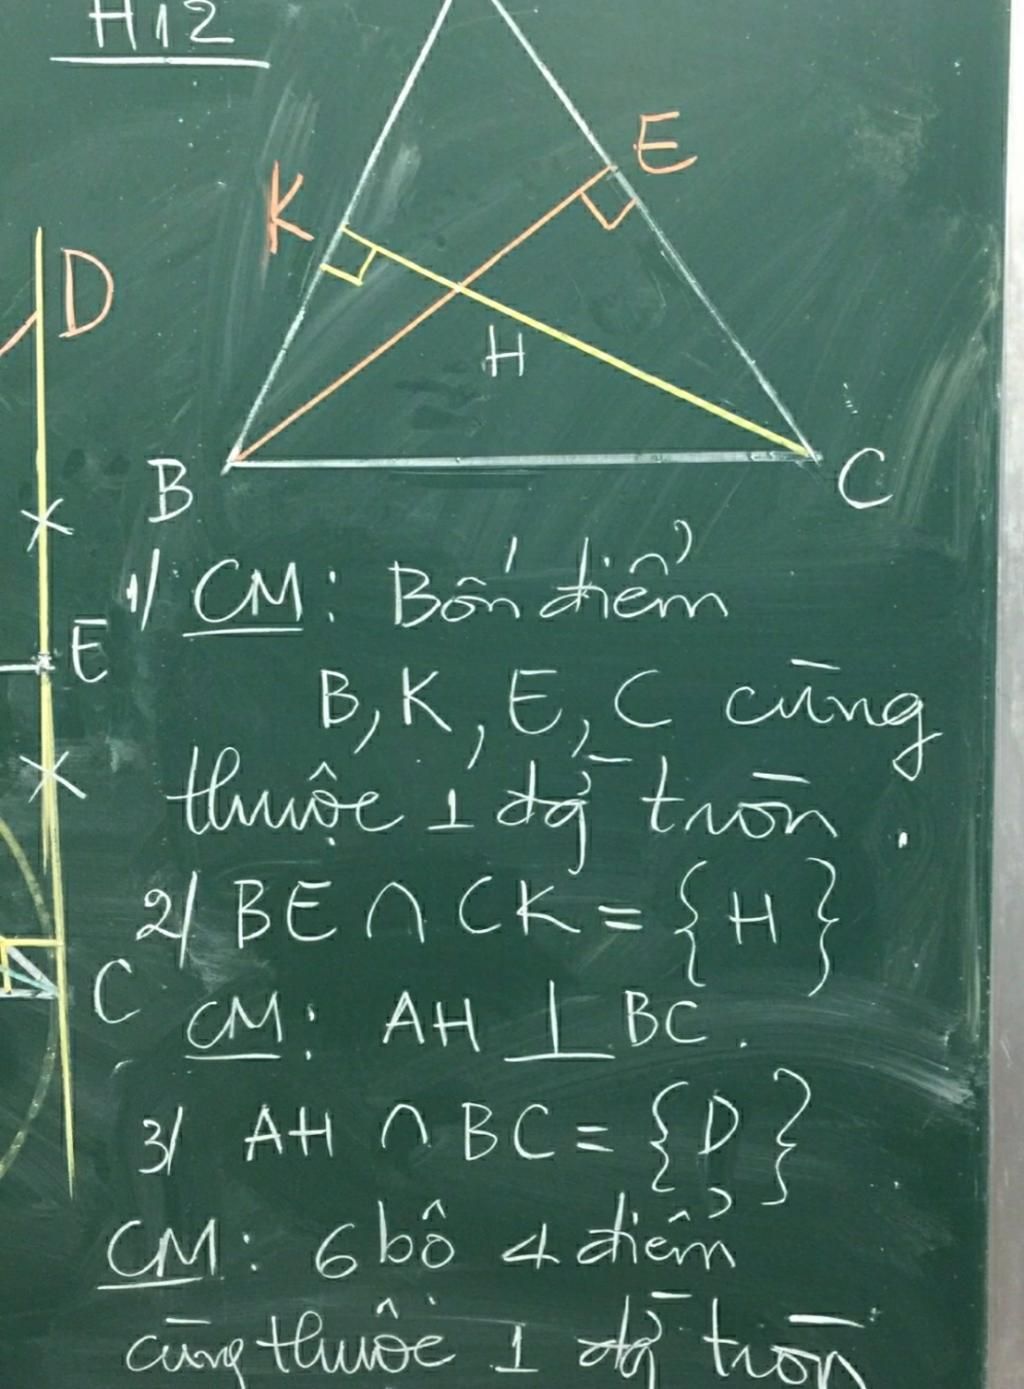 H12
E
K
D
H
B
C
1/ CM: Bốn điểm
E
B, K, E, C cùng
thuộc 1 đg tròn.
2/ BE ∩ CK = { H }
C
CM: AH ⊥ BC.
3/ AH ∩ BC = { D }
CM: 6 bộ 4 điểm
cùng thuộc 1 đg tròn